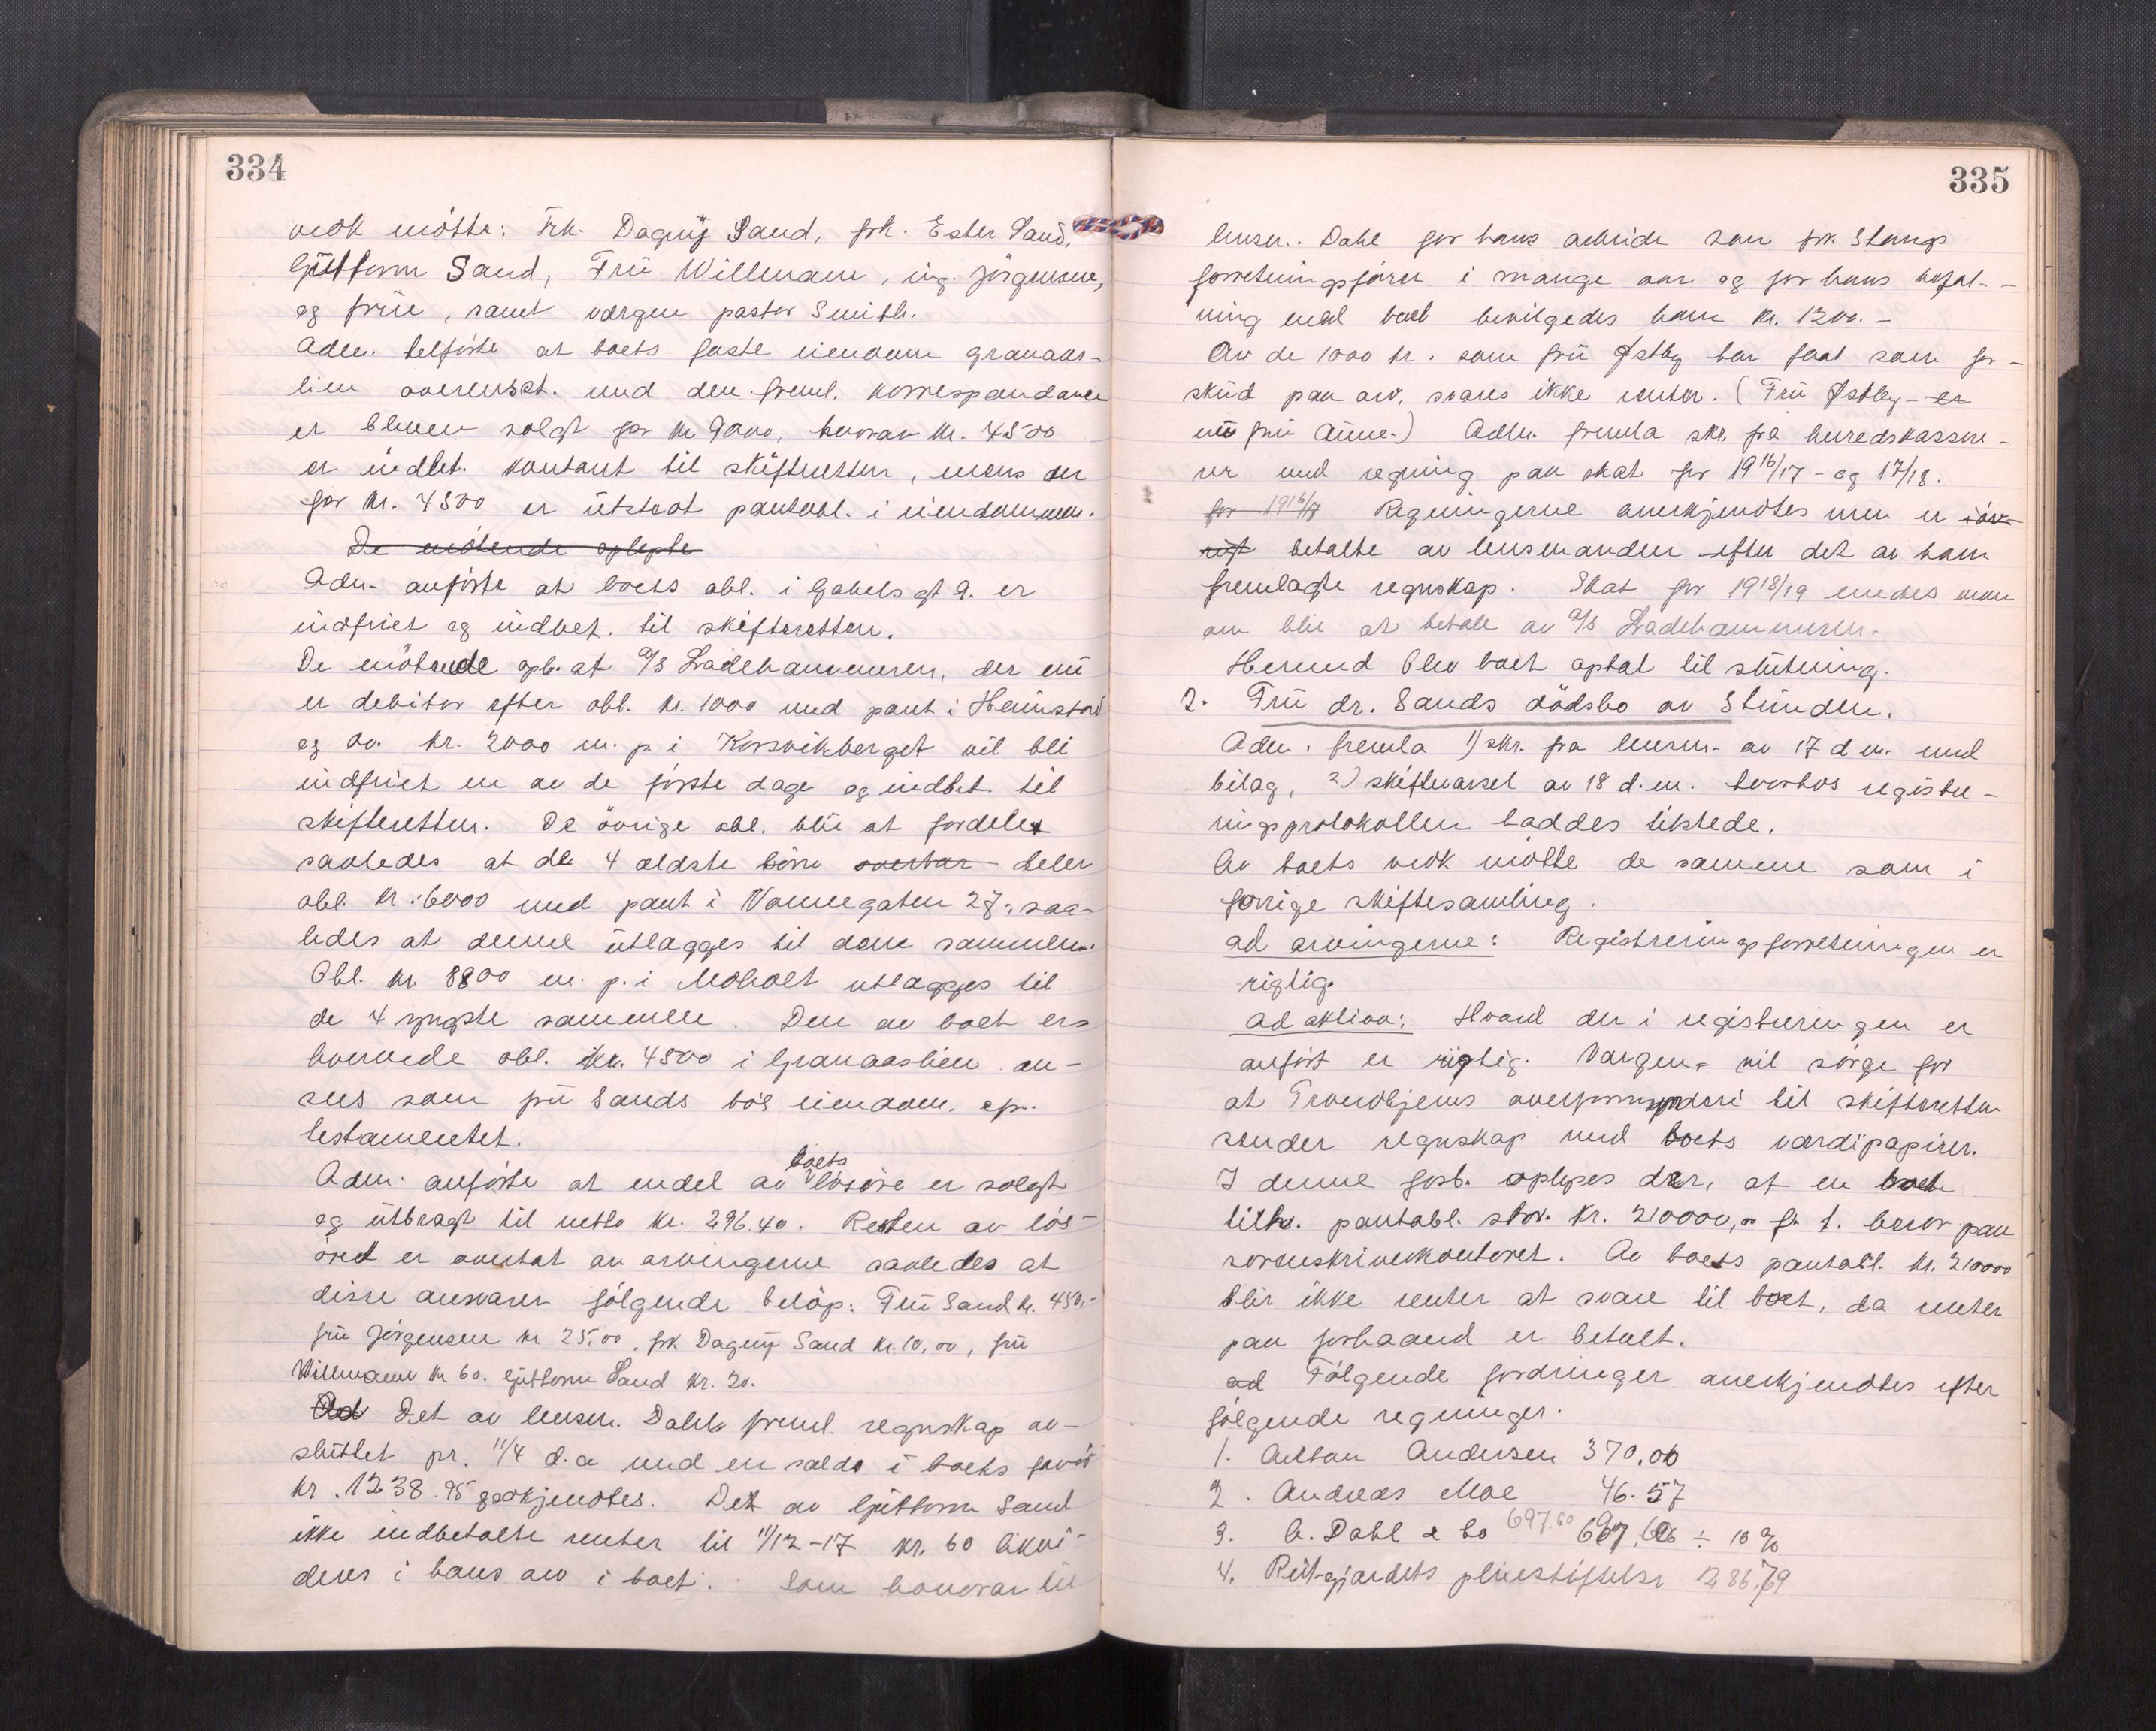 334
vedk møtte: Frk. Dagny Sand, frk. Ester Sand,
Guttorm Sand, Fru Willmann, ing. Jørgensen,
og frue, samt værgen pastor Smith.
Adm. tilførte at boets faste eiendom Granaas-
lien overensst. med den freml. korrespondance
er bleven solgt for kr 9000, hvorav kr. 4500
er indbet. kontant til skifteretten, mens der
for kr. 4500 er utstedt pantobl. i eiendommen.
De møtende oplyste
Adm. anførte at boets obl. i Gabels gt 9. er
indfriet og indbet. til skifteretten.
De møtende opl. at A/S Ladehammeren, der nu
er debitor efter obl. kr. 1000 med pant i Heimstad
og do. kr. 2000 m. p. i Korsvikberget vil bli
indfriet en av de første dage og indbet. til
skifteretten. De øvrige obl. blir at fordele
saaledes at de 4 ældste børn overtar deler
obl. kr. 6000 med pant i Vonnegaten 27, saa-
ledes at denne utlægges til dem sammen.
Obl. kr 8800 m. p. i Moholt utlægges til
de 4 yngste sammen. Den av boet er-
hvervede obl. kr. 4500 i Granaaslien an-
sees som fru Sands bos eiendom. efr.
testamentet.
Adm. anførte at endel av boets løsøre er solgt
og utbragt til netto kr. 296.40. Resten av løs-
øret er overtat av arvingerne saaledes at
disse ansvarer følgende beløp: Fru Sand kr. 450,-
fru Jørgensen kr 25,00, frk Dagny Sand kr. 10,00, fru
Willmann kr 60. Guttorm Sand kr. 20.
Ad Det av lensm. Dahl freml. regnskap av-
sluttet pr. 11/4 d.a med en saldo i boets favør
kr. 1238.95 godkjendtes. Det av Guttorm Sand
ikke indbetalte renter til 11/12-17 kr. 60 likvi-
deres i hans arv i boet. Som honorar til
335
lensm. Dahl for hans arbeide som frk. Stangs
forretningsfører i mange aar og for hans befat-
ning med boet bevilgedes ham kr. 1200.-
Av de 1000 kr. som fru Østby har faat som for-
skud paa arv, svares ikke renter. (Fru Østby er
nu fru Aune.) Adm. fremla skr. fra herredskassere-
ren med regning paa skat for 1916/17 - og 17/18.
for 1916/17 Regningerne anerkjendtes men er iøv-
rigt betalte av lensmanden efter det av ham
fremlagte regnskap. Skat for 1918/19 enedes man
om blir at betale av A/S Ladehammeren.
Hermed blev boet optat til slutning.
2. Fru dr. Sands dødsbo av Strinden.
Adm. fremla 1) skr. fra lensm. av 17 d m. med
bilag, 2) skiftevarsel av 18 d.m. hvorhos registre-
ringsprotokollen haddes tilstede.
Av boets vedk møtte de samme som i
forrige skiftesamling.
ad arvingerne: Registreringsforretningen er
rigtig.
ad aktiva: Hvad der i registreringen er
anført er rigtig. Værgen vil sørge for
at Trondhjems overformynderi til skifteretten
sender regnskap med boets værdipapirer.
I denne forb. oplyses der, at en boet
tilh. pantobl. stor. kr. 210000, f. t. beror paa
sorenskriverkontoret. Av boets pantobl. kr. 210000
blir ikke renter at svare til boet, da renter
paa forhaand er betalt.
ad Følgende fordringer anerkjendtes efter
følgende regninger.
1. Anton Andersen 370.00
2. Andreas Moe 46.57
3. A. Dahl & Co 697.60 ÷ 10 %
4. Reitgjærdets pleiestiftelse 1286.79